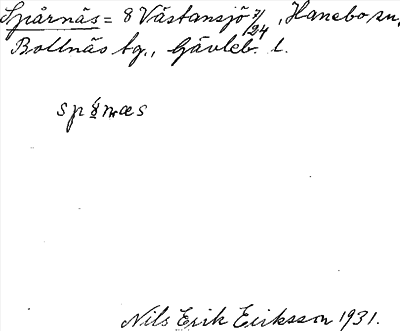 Spårnäs = 8 Västansjö 7/24, Hanebo sn,
Bollnäs tg., Gävleb. l.
Nils Erik Eriksson 1931.